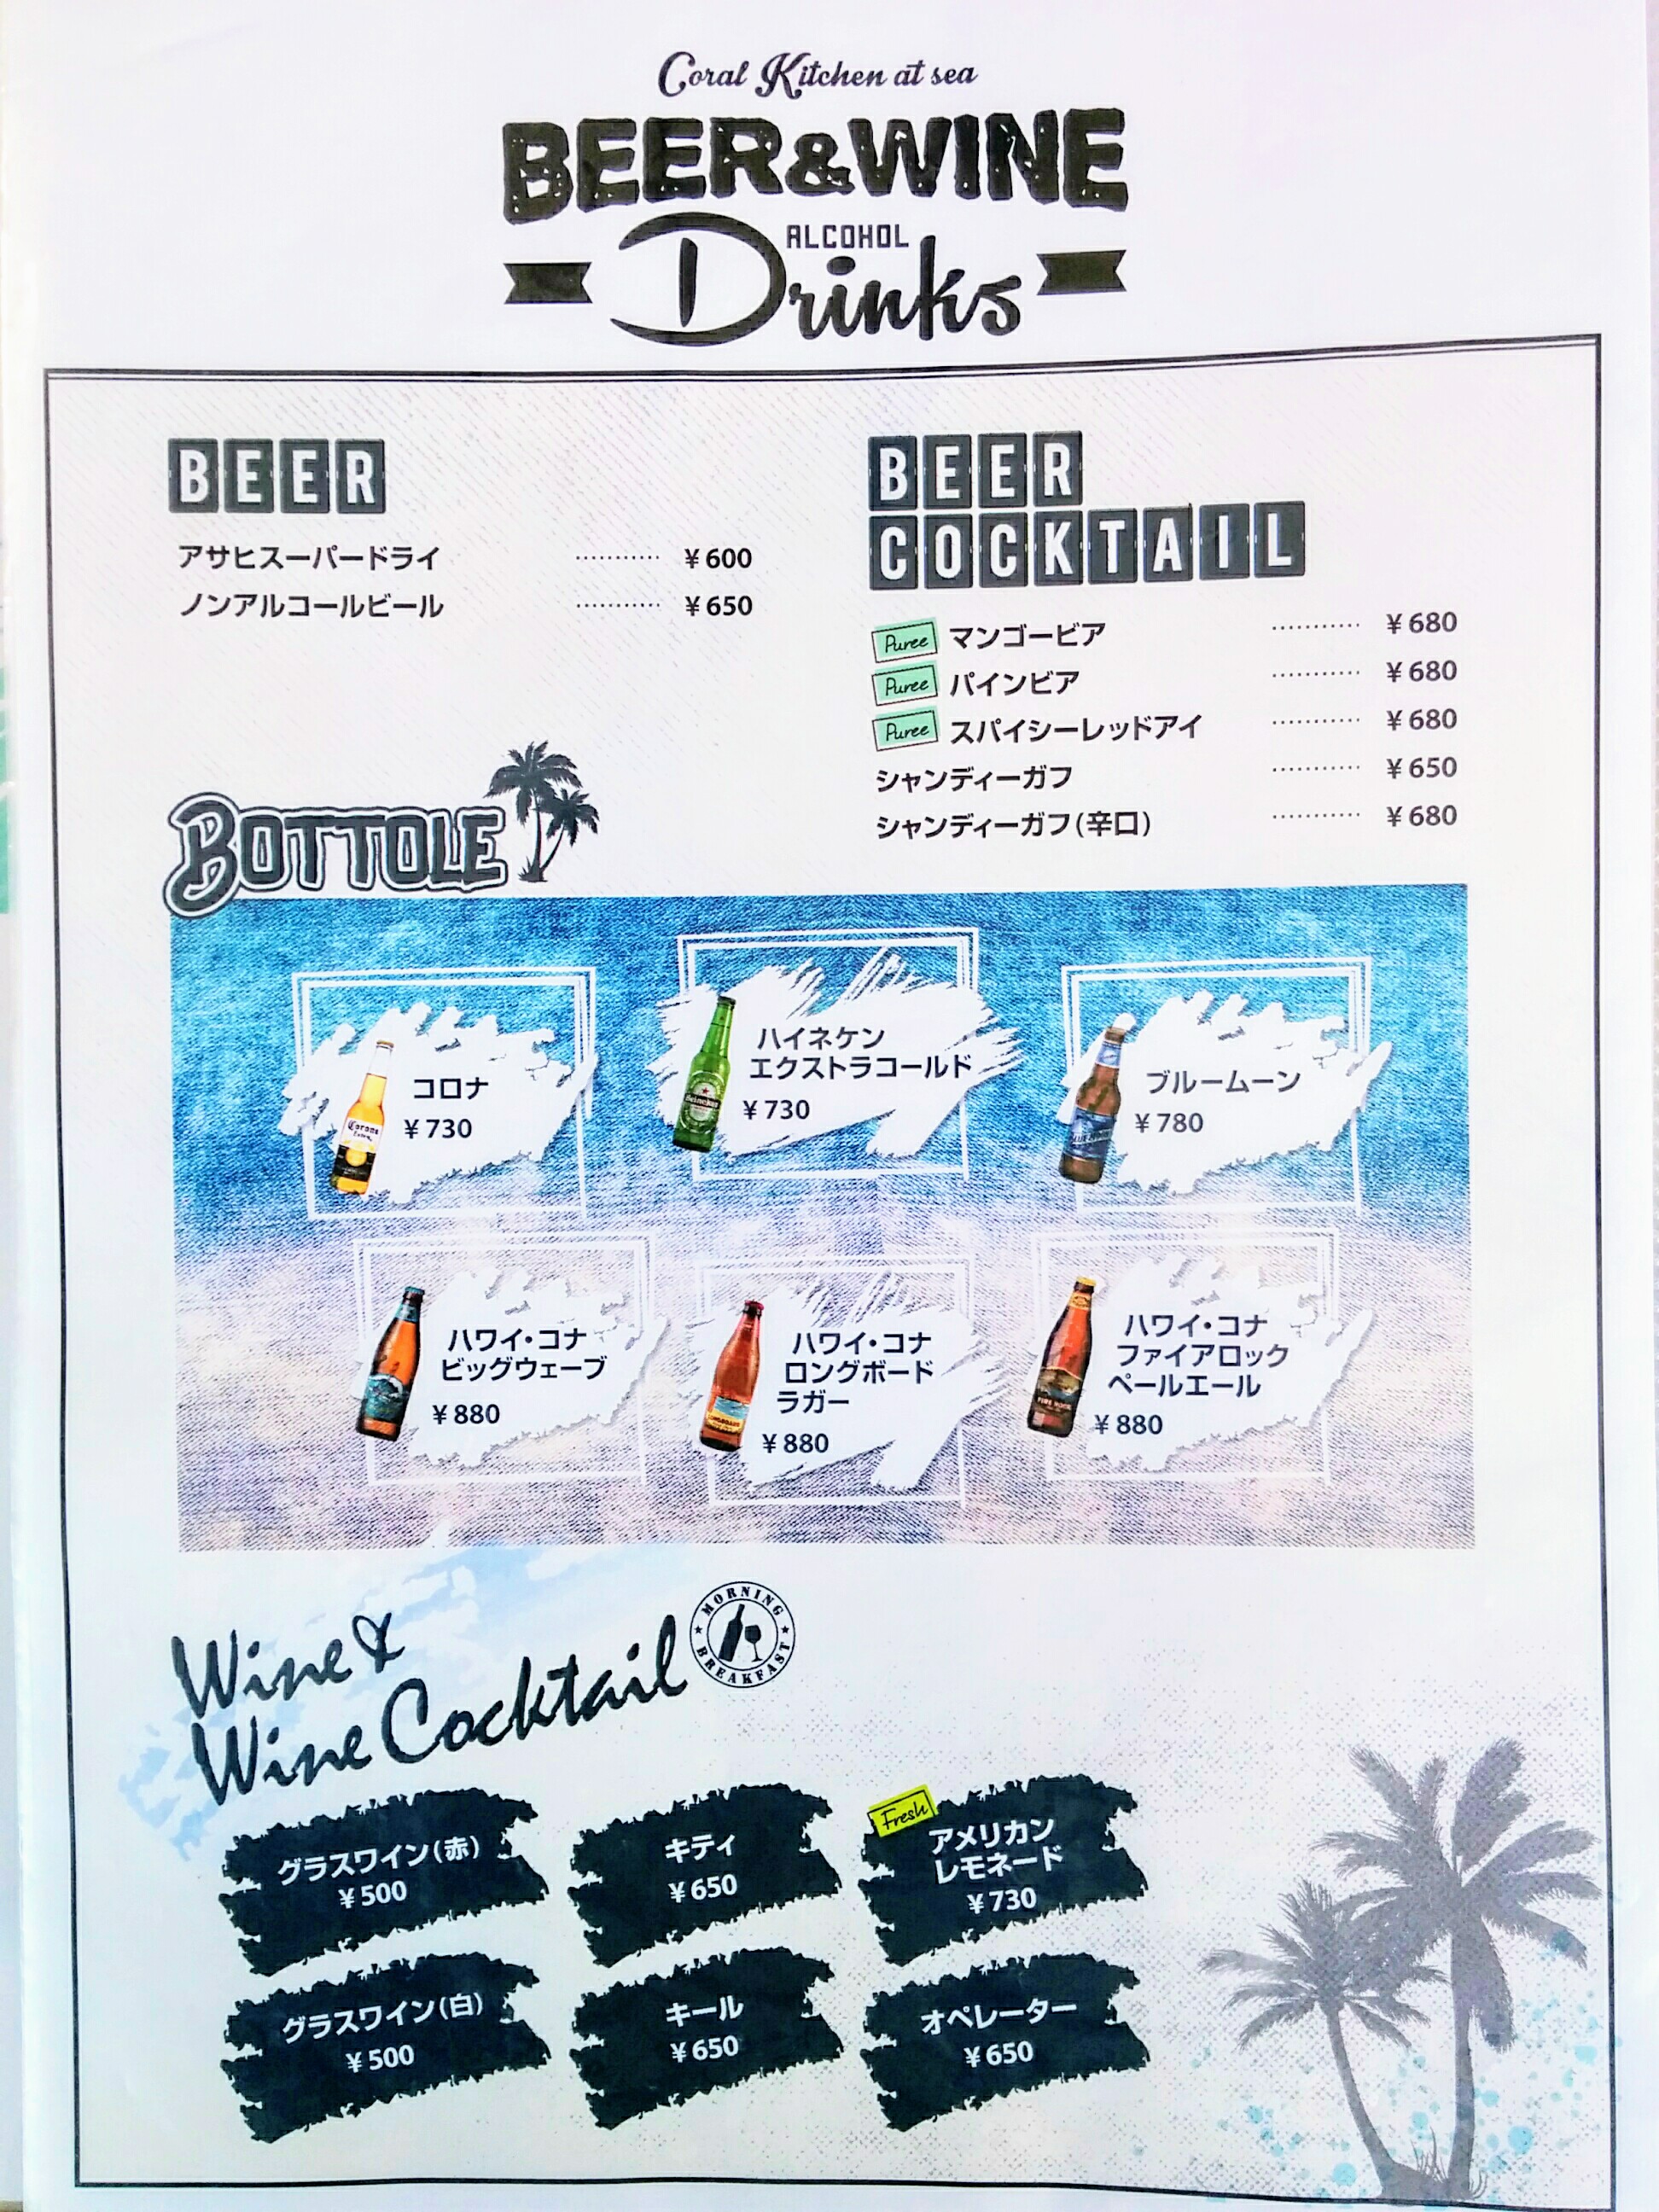 Coral Kitchen at sea
BEER&WINE
ALCOHOL
Drinks
BEER
アサヒスーパードライ ........... ¥600
ノンアルコールビール ........... ¥650
BEER
COCKTAIL
Puree マンゴービア ........... ¥680
Puree パインビア ........... ¥680
Puree スパイシーレッドアイ ........... ¥680
シャンディーガフ ........... ¥650
シャンディーガフ(辛口) ........... ¥680
BOTTOLE
コロナ
¥730
Corona
Extra
ハイネケン
エクストラコールド
¥730
Heineken
ブルームーン
¥780
ハワイ・コナ
ビッグウェーブ
¥880
ハワイ・コナ
ロングボード
ラガー
¥880
LONGBOARD
ハワイ・コナ
ファイアロック
ペールエール
¥880
FIRE ROCK
Wine &
Wine Cocktail
MORNING
BREAKFAST
グラスワイン(赤)
¥500
キティ
¥650
Fresh
アメリカン
レモネード
¥730
グラスワイン(白)
¥500
キール
¥650
オペレーター
¥650